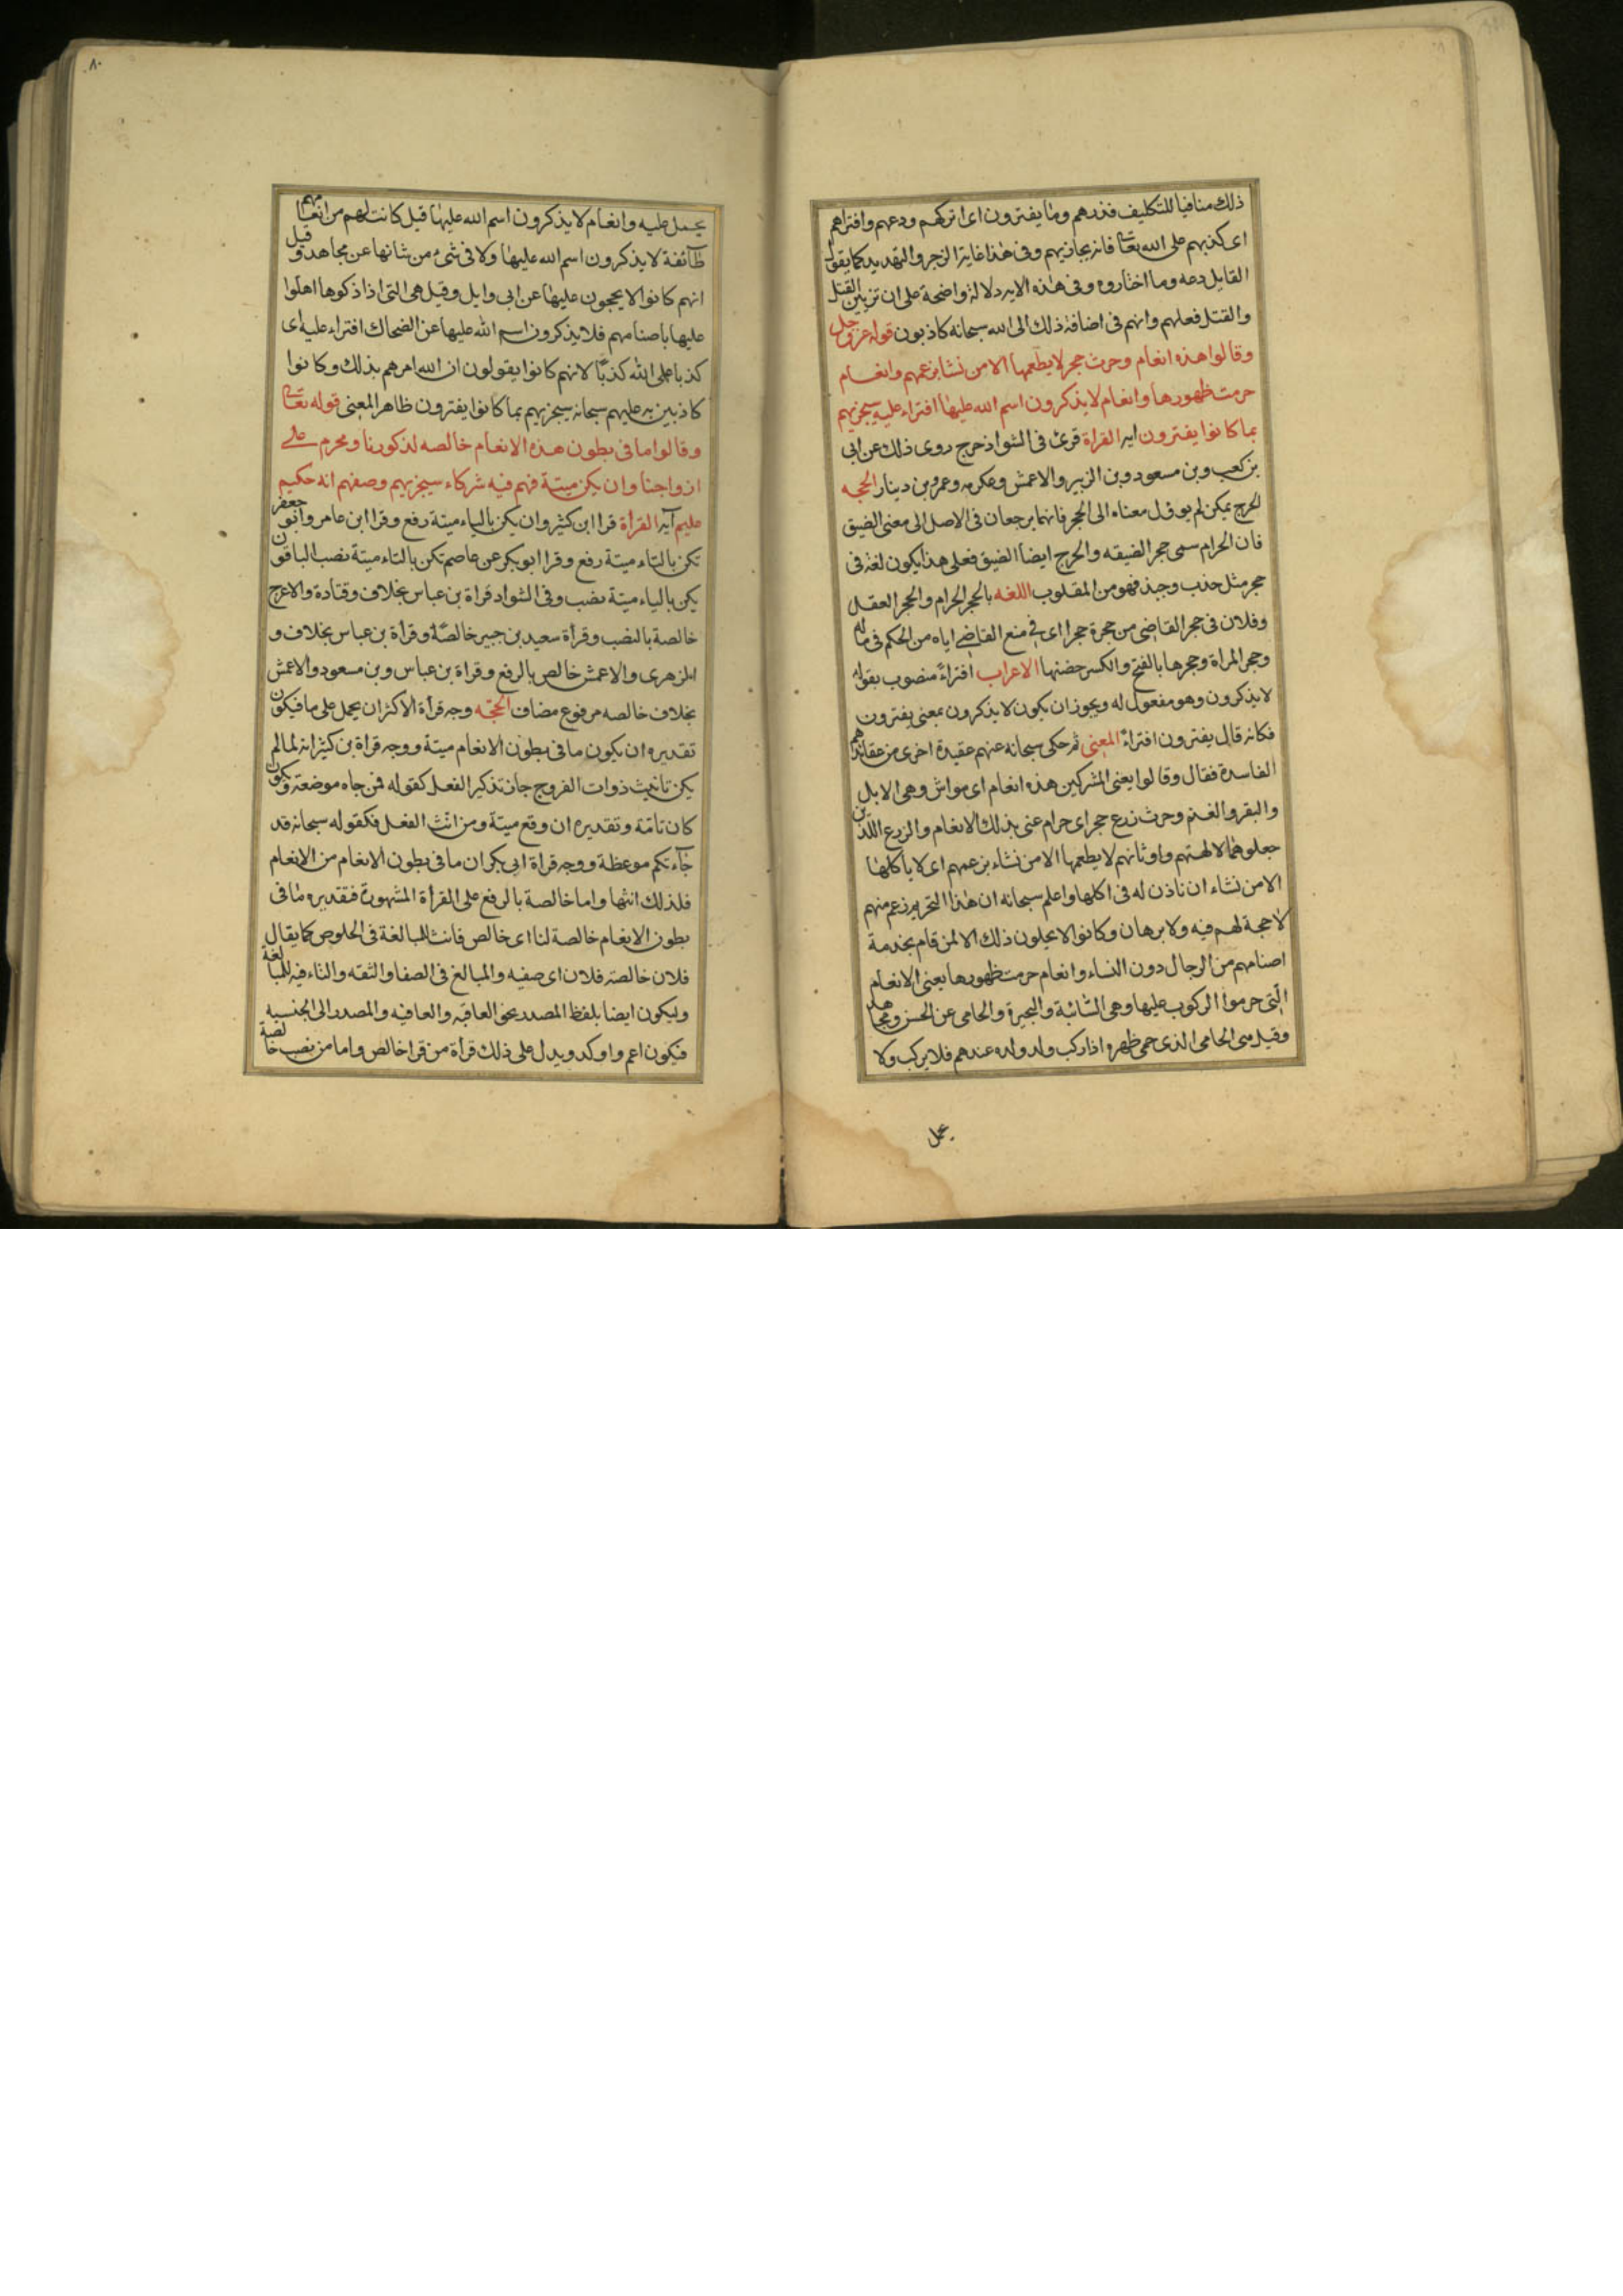 ذلك منافيا للتكليف فذرهم وما يفترون اى اتركهم ودعهم وافتراهم
اى كذبهم على الله تعالى فانه يجازيهم وفى هذا غاية الزجر والتهديد كما يقول
القايل دعه وما اختاره وفى هذه الايه دلالة واضحة على ان تزيين القتل
والقتل فعلهم وانهم فى اضافة ذلك الى الله سبحانه كاذبون قوله عز وجل
وقالوا هذه انعام وحرث حجر لا يطعمها الا من نشا بزعمهم وانعام
حرمت ظهورها وانعام لا يذكرون اسم الله عليها افتراء عليه سيجزيهم
بما كانوا يفترون ايه القراة قرئ فى الشواذ حرج روى ذلك عن ابى
بن كعب وبن مسعود وبن الزبير والاعمش وعكرمه وعمرو بن دينار الحجه
لحرج يمكن لم يوول معناه الى الحجر فانهما يرجعان فى الاصل الى معنى الضيق
فان الحرام سمى حجر الضيقه والحرج ايضا الضيق فعلى هذا يكون لغة فى
حجر مثل جذب وجبذ فهو من المقلوب اللغه بالحجر الحرام والحجر العقل
وفلان فى حجر القاضى من حجرة حجرا اى فى منع القاضى اياه من الحكم فى ماله
وحجر المراة وحجرها بالفتح والكسر حضنها الاعراب افتراءً منصوب بقوله
لا يذكرون وهو مفعول له ويجوز ان يكون لا يذكرون بمعنى يفترون
فكانه قال يفترون افتراءً المعنى ثم حكى سبحانه عنهم عقيدة اخرى من عقائدهم
الفاسدة فقال وقالوا يعنى المشركين هذه انعام اى مواش وهى الابل
والبقر والغنم وحرث زرع حجر اى حرام عنى بذلك الانعام والزرع اللذين
جعلوهما لالهتهم واوثانهم لا يطعمها الا من نشاء بزعمهم اى لا ياكلها
الا من نشاء ان ناذن له فى اكلها واعلم سبحانه ان هذا التحريم زعم منهم
لا حجة لهم فيه ولا برهان وكانوا لا يحلون ذلك الا لمن قام بخدمة
اصنامهم من الرجال دون النساء وانعام حرمت ظهورها يعنى الانعام
التى حرموا الركوب عليها وهى السائبة والبحيرة والحامى عن الحسن ومجاهد
وقيل هى الحامى الذى حمى ظهره اذا ركب ولد ولده عندهم فلا يركب ولا
يحمل
٨٠
يحمل عليه وانعام لا يذكرون اسم الله عليها قيل كانت لهم من انعامهم
طآئفة لا يذكرون اسم الله عليها ولا فى شىء من شانها عن مجاهد وقيل
انهم كانوا لا يحجون عليها عن ابى وايل وقيل هى التى اذا ذكوها اهلوا
عليها باصنامهم فلا يذكرون اسم الله عليها عن الضحاك افتراء عليه اى
كذبا على الله كذبًا لانهم كانوا يقولون ان الله امرهم بذلك وكانوا
كاذبين به عليهم سبحانه سيجزيهم بما كانوا يفترون ظاهر المعنى قوله تعالى
وقالوا ما فى بطون هذه الانعام خالصه لذكورنا ومحرم على
ازواجنا وان يكن ميتة فهم فيه شركاء سيجزيهم وصفهم انه حكيم
عليم آيه القرأة قرا ابن كثير وان يكن بالياء ميتة رفع وقرا ابن عامر وابو جعفر
تكن بالتاء ميتة رفع وقرا ابو بكر عن عاصم تكن بالتاء ميتة نصب الباقون
يكن بالياء ميتة نصب وفى الشواد قراة بن عباس بخلاف وقتادة والاعرج
خالصة بالنصب وقرأة سعيد بن جبير خالصًا وقرأة بن عباس بخلاف و
الزهرى والاعمش خالص بالرفع وقراة بن عباس وبن مسعود والاعمش
بخلاف خالصه مرفوع مضاف الحجّه وجه قرأة الاكثر ان يحمل على ما فيكون
تقديره ان يكون ما فى بطون الانعام ميتة ووجه قراة بن كثير انه لما لم
يكن تانيث ذوات الفروج جاز تذكير الفعل كقوله فمن جاه موضعة ويكون
كان تامّة وتقديره ان وقع ميتة ومن انّث الفعل فكقوله سبحانه قد
جآءتكم موعظة ووجه قراة ابى بكر ان ما فى بطون الانعام من الانعام
فلذلك انثها واما خالصة بالرفع على القرأة المشهورة فتقديره ما فى
بطون الانعام خالصة لنا اى خالص فانث للمبالغة فى الخلوص كما يقال
فلان خالصة فلان اى صفيه والمبالغ فى الصفا والثقه والتاء فيه للمبالغة
وليكون ايضا بلفظ المصدر نحو العاقبه والعافيه والمصدر الى الجنسيه
فيكون اعم واوكد ويدل على ذلك قرأة من قرا خالص واما من نصب خالصة